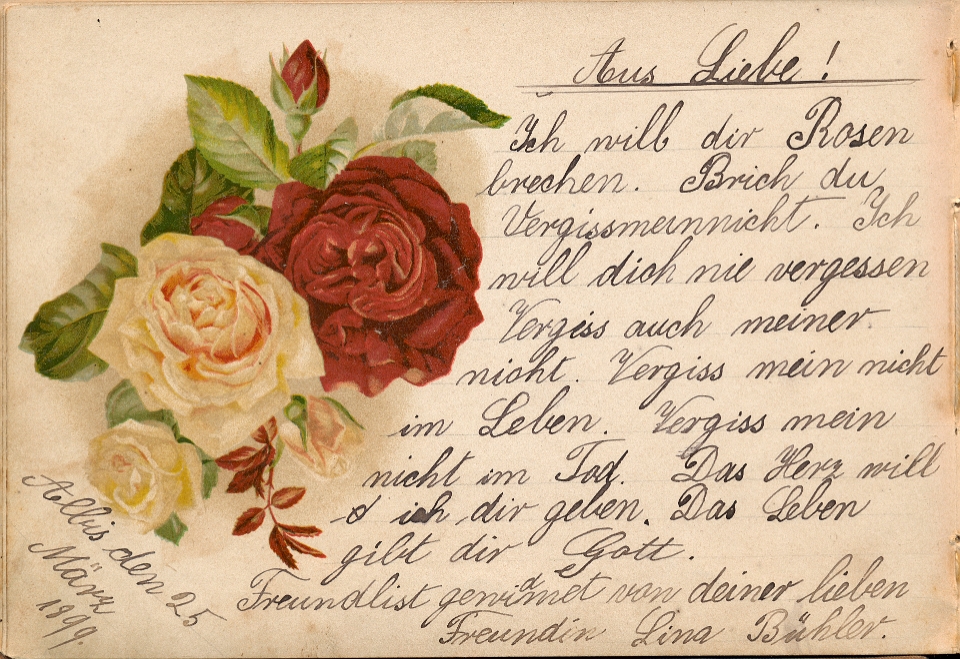 Aus Liebe!
Ich will dir Rosen
brechen. Brich du
Vergissmeinnicht. Ich
will dich nie vergessen
Vergiss auch meiner
nicht. Vergiss mein nicht
im Leben. Vergiss mein
nicht im Tod. Das Herz will
ich dir geben. Das Leben
gibt dir Gott.
Freundlist gewidmet von deiner lieben
Freundin Lina Bühler.
Aelbis den 25
März
1899.